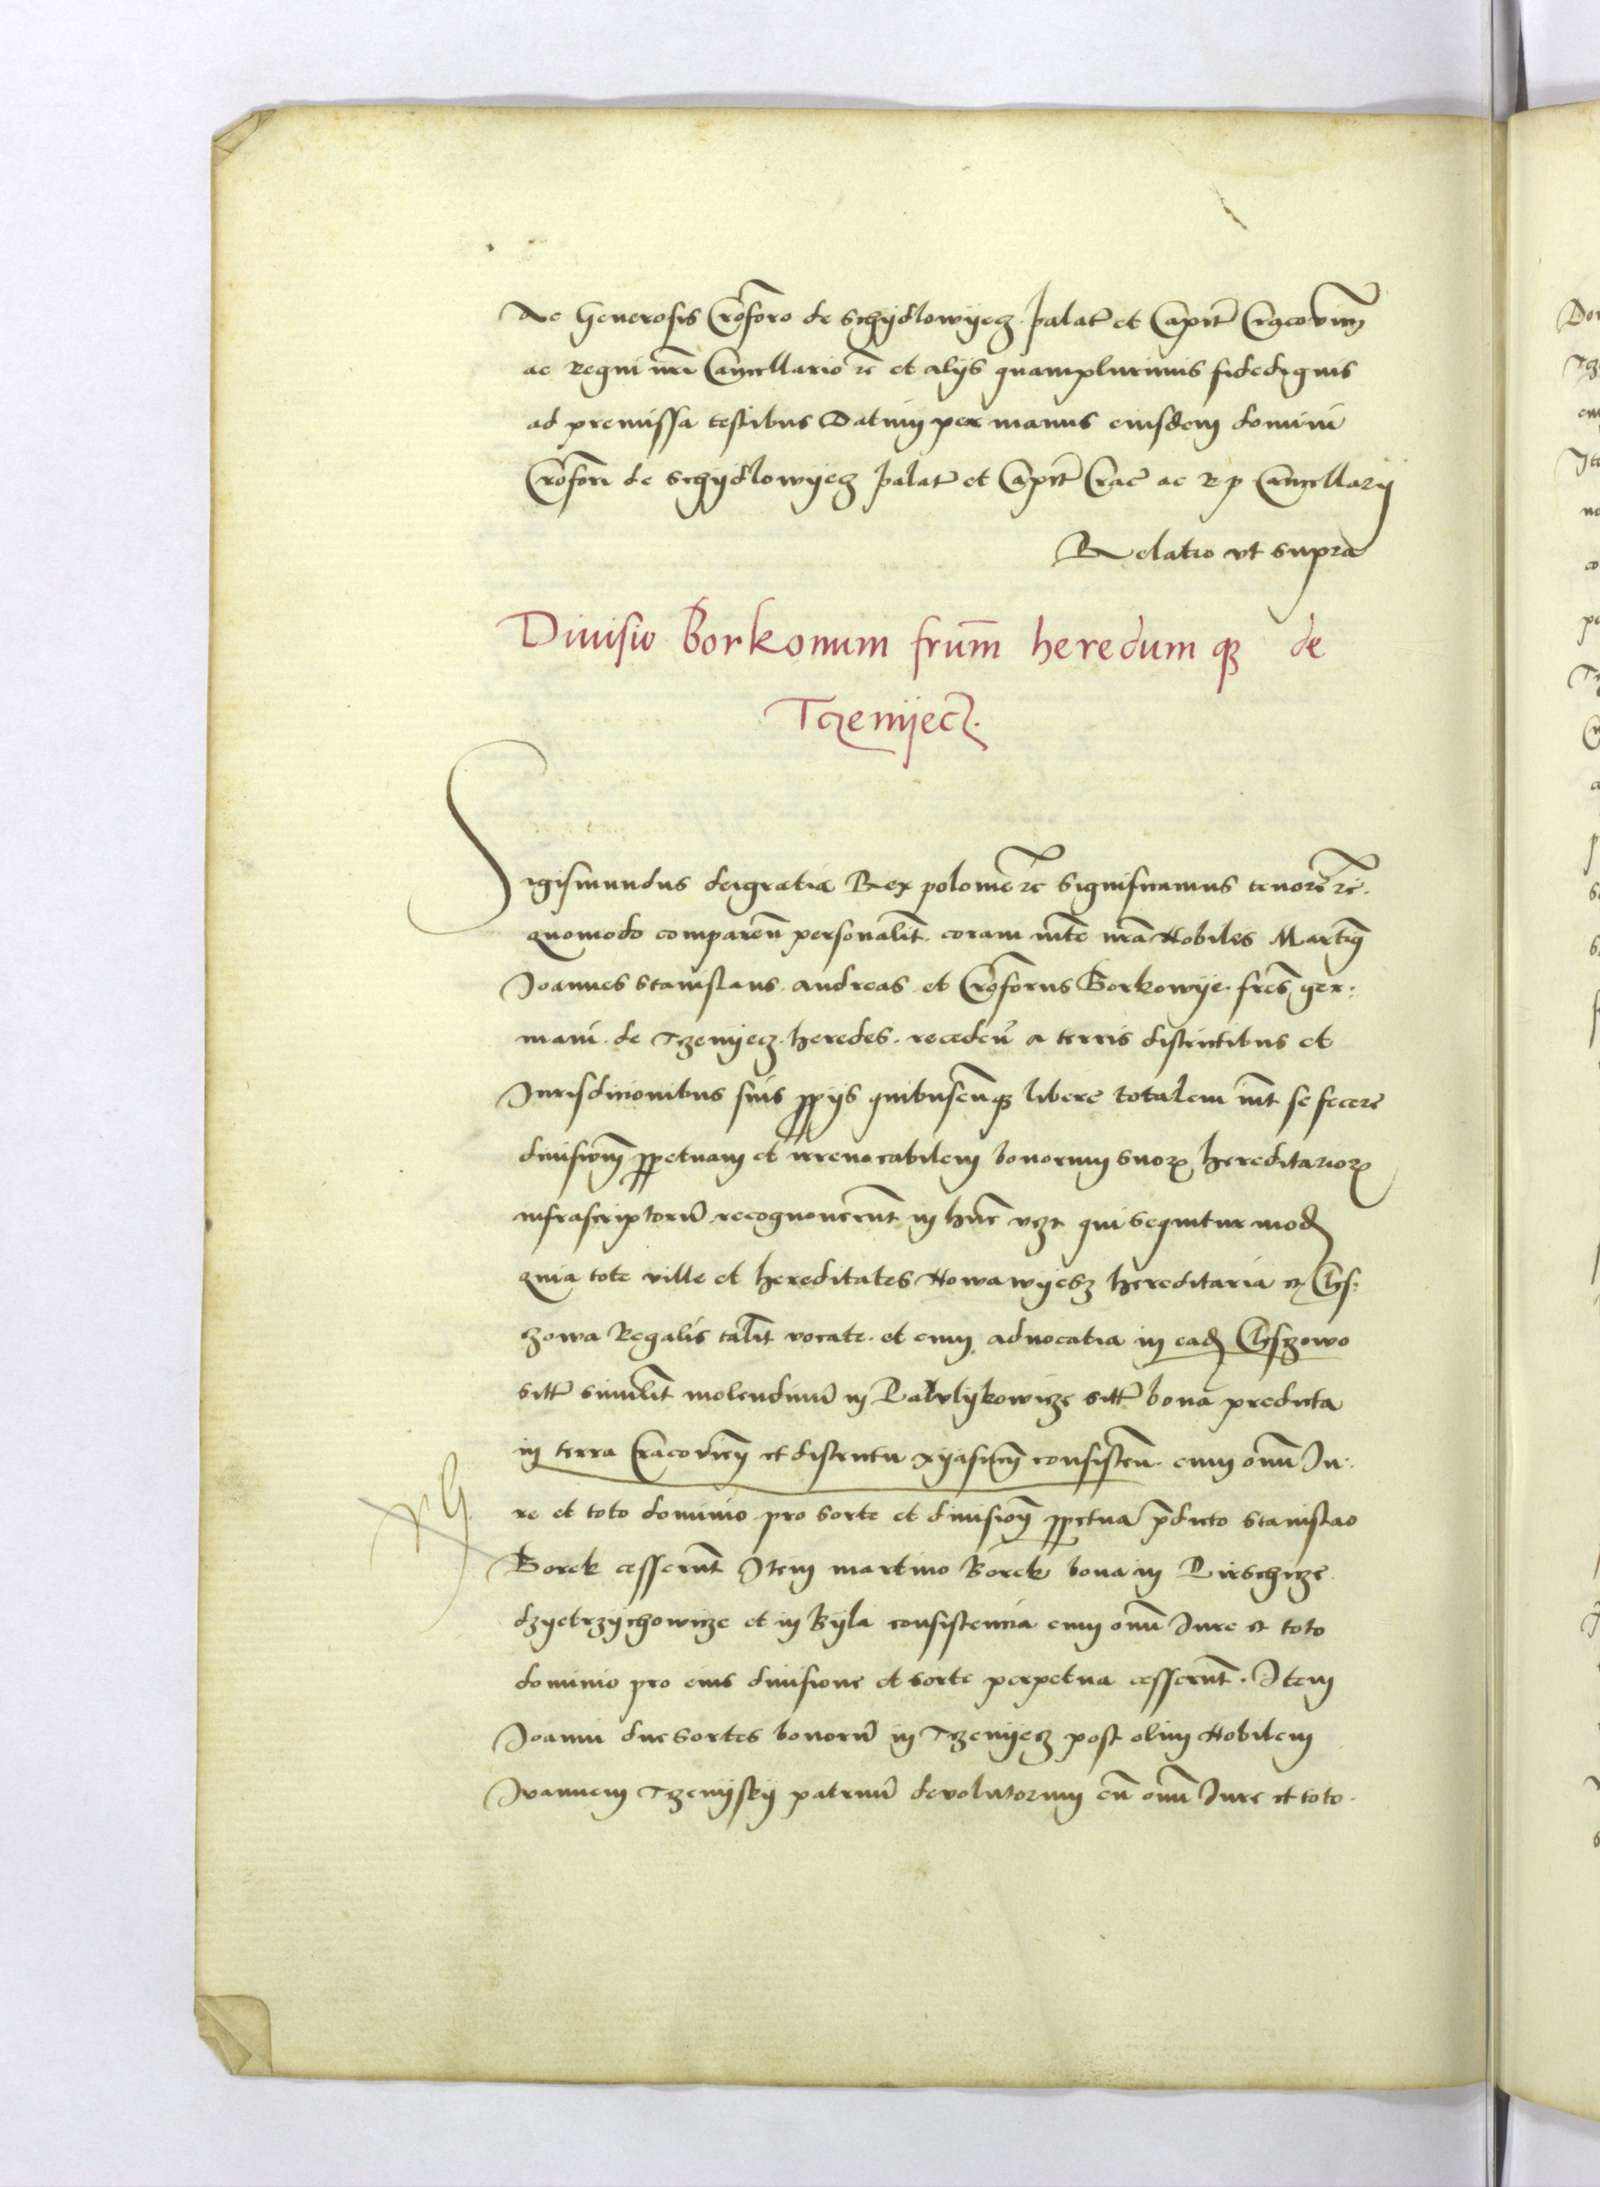 Ac Generosis Cr̃oforo de Schÿdlowÿecz palat̃ et Capit̃ Cracovieñ
ac Regni nr̃i Cancellario r̃c et alÿs quamplurimis fidedignis
ad premissa testibus Datum per manus eiusdem domini
Cr̃ofori de Schÿdlowÿecz palat̃ et Capit̃ Crac̃ ac R p Cancellarÿ
Relatio vt supra
Diuisio Borkonum frum̃ heredum qz de
Tczenÿecz.
Sigismundus deigratia Rex polonie r̃c Significamus tenore r̃c.
quomodo compareñ personalit̃. coram mt̃e nr̃a Nobiles Martinꝰ
Joannes Stanislaus. Andreas. et Cr̃oforus Borkowÿe. fres̃ ger:
mani. de Tczenÿecz. heredes. recedeñ a terris districtibus et
Jurisdicionibus suis ꝓprÿs quibuscũqz libere totalem int̃ se fecere
diuisionem̃ ꝑpetuam et irreuocabilem bonorum suoꝝ hereditarioꝝ
infrascriptorũ recognouerunt̃ in hunc̃ vczt qui sequitur modũ
quia tote ville et hereditates Nowawÿesz hereditaria et Chis:
zowa Regalis talit̃ vocate. et cum aduocatia in eadẽ Chiszowo
sitt̃ similit̃ molendinũ in Pawlÿkowicze sitt̃ bona predicta
in terra Cracovieñ et districtu Xÿasneñ consisteñ. cum om̃i Ju:
re et toto dominio pro sorte et diuisione ꝑpetua p̃dicto Stanislao
Borek cesserunt̃ Item martino Borek bona in Pirschicze
dzÿetrzÿchowicze et in Bÿla consistencia cum om̃i Jure et toto
dominio pro eius diuisione et sorte perpetua cesserunt̃. Item
Joanni due sortes bonorũ in Tczenÿecz post olim Nobilem
Joannem Tczenÿskÿ patruũ deuolutorum cũ om̃i Jure et toto.